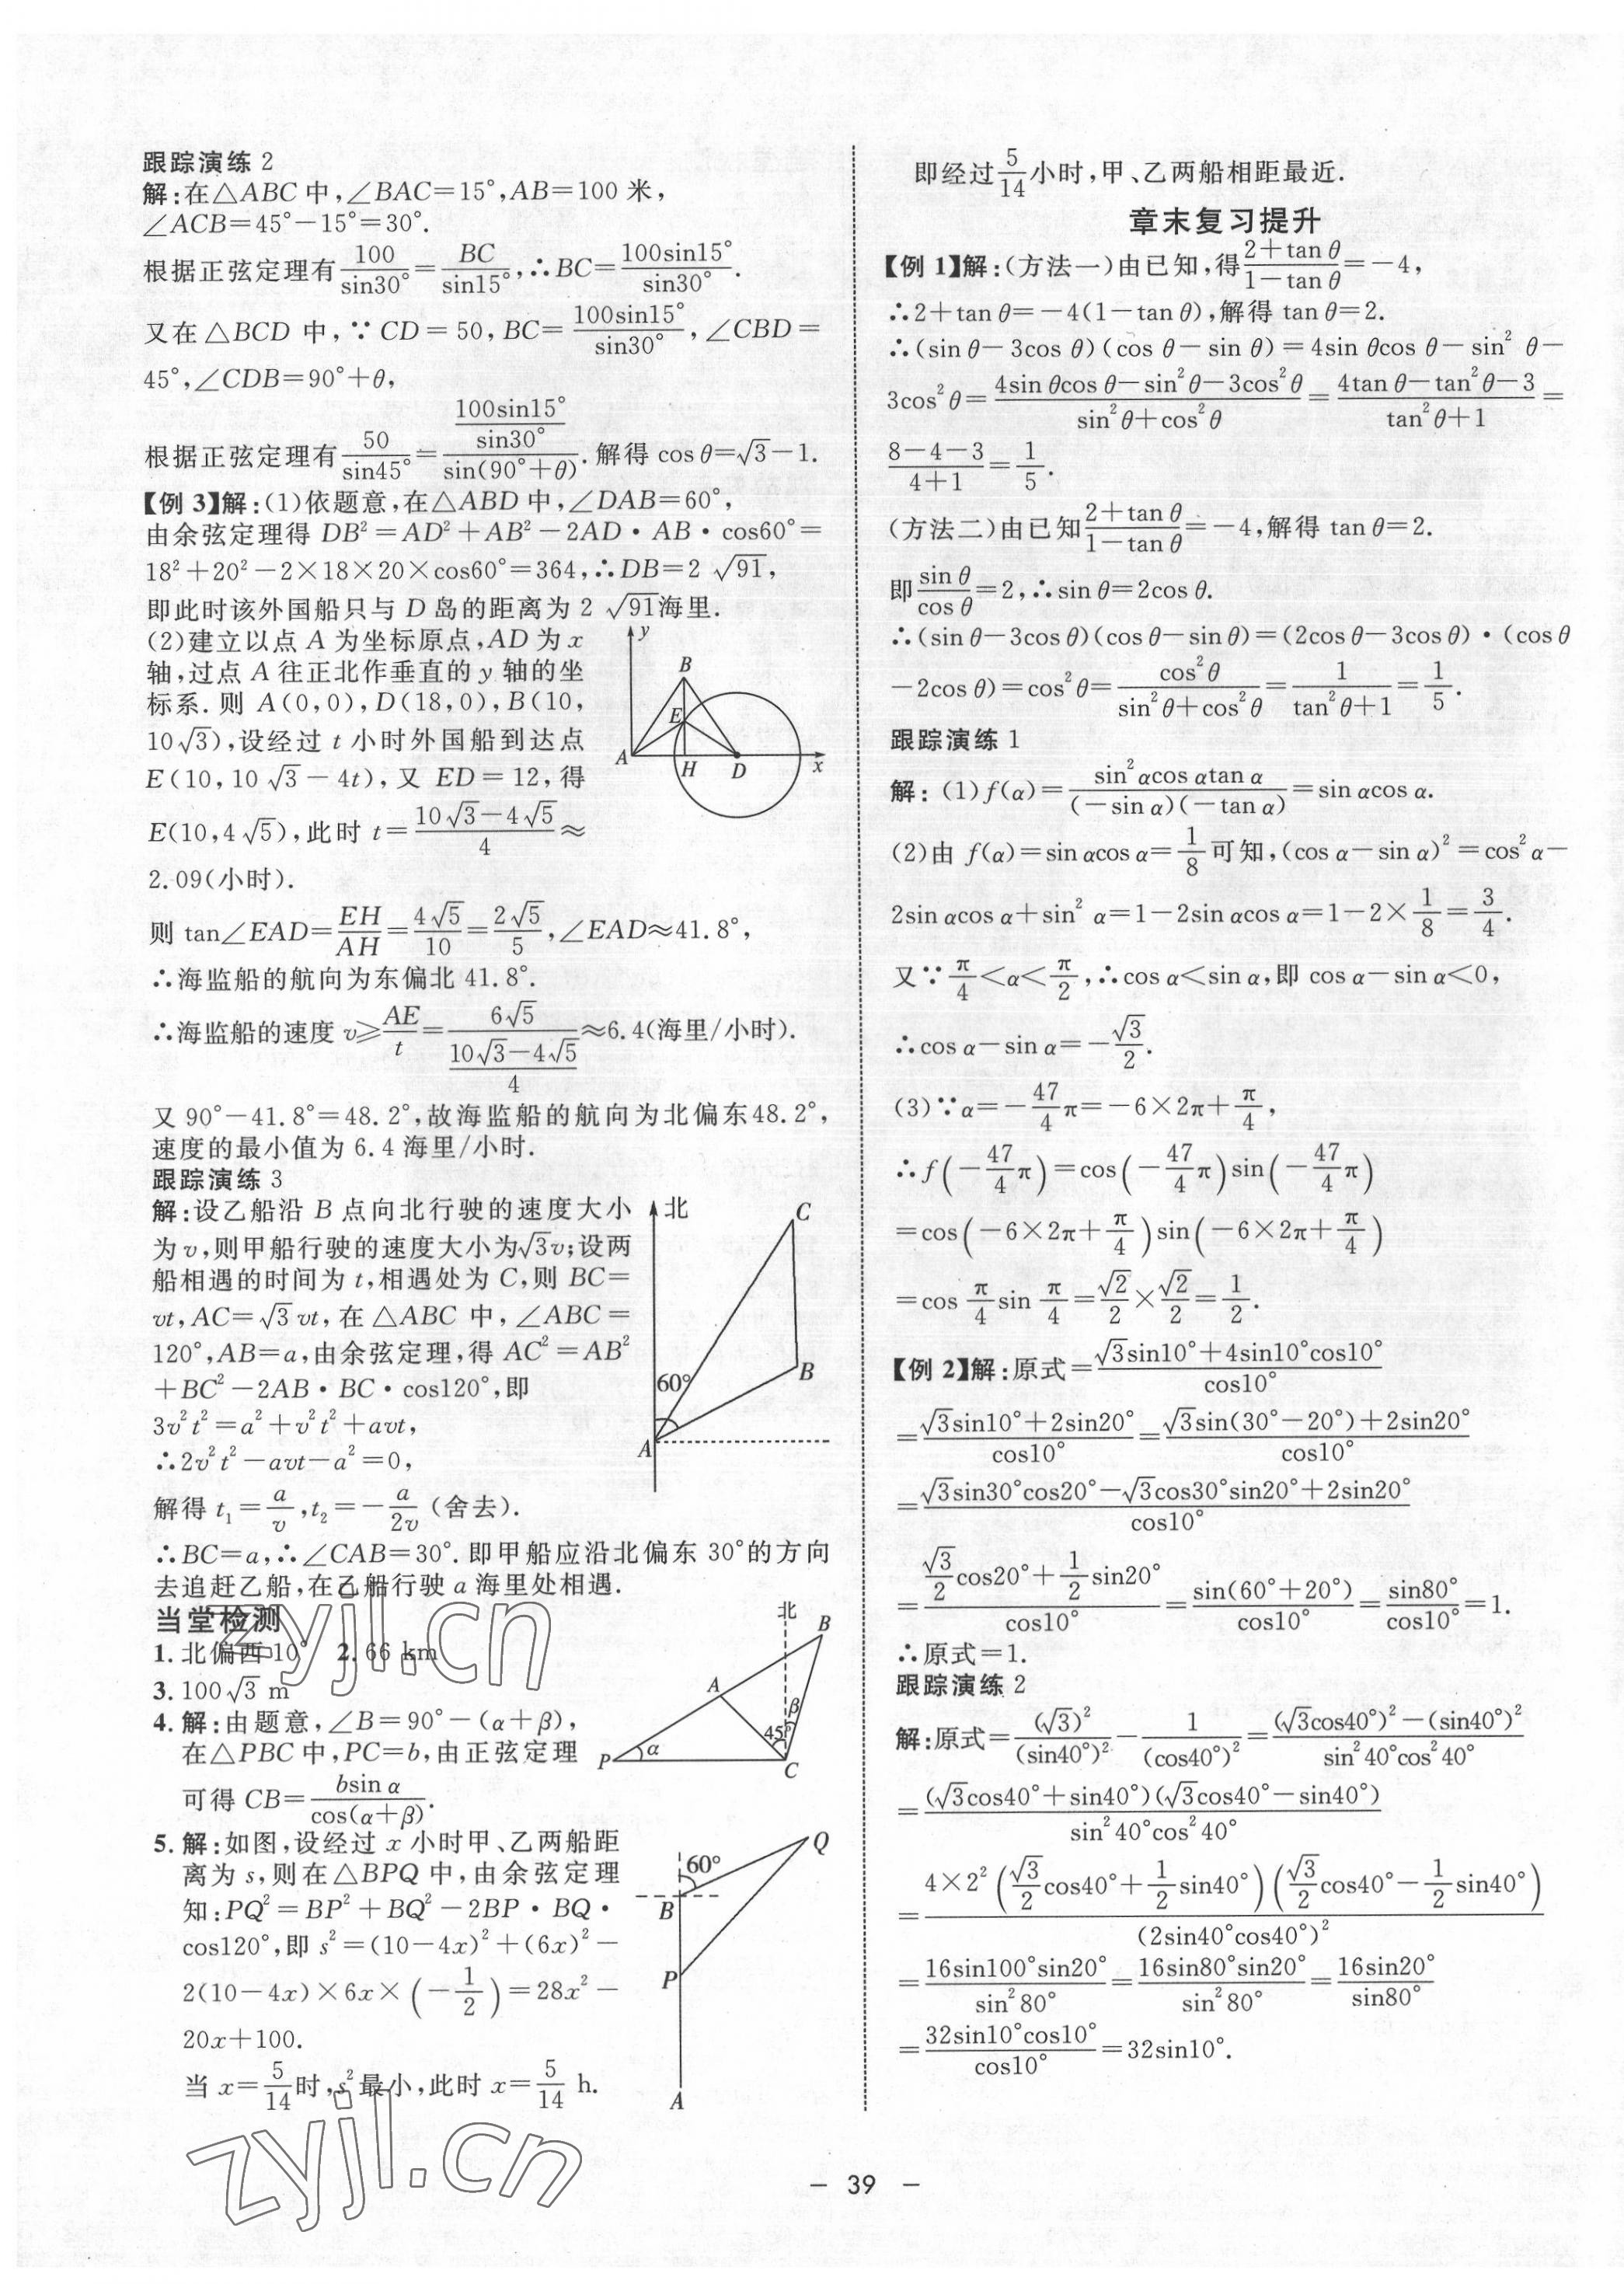 跟踪演练 2
解:在△ABC 中,∠BAC=15°,AB=100 米,
∠ACB=45°-15°=30°.
根据正弦定理有 100/sin30° = BC/sin15°,∴BC= 100sin15°/sin30°.
又在△BCD 中,∵CD=50,BC= 100sin15°/sin30°,∠CBD=
45°,∠CDB=90°+θ,
根据正弦定理有 50/sin45° = (100sin15°/sin30°)/sin(90°+θ).解得 cos θ=√3-1.
【例 3】解:(1)依题意,在△ABD 中,∠DAB=60°,
由余弦定理得 DB²=AD²+AB²-2AD·AB·cos60°=
18²+20²-2×18×20×cos60°=364,∴DB=2√91,
即此时该外国船只与 D 岛的距离为 2√91海里.
(2)建立以点 A 为坐标原点,AD 为 x
轴,过点 A 往正北作垂直的 y 轴的坐
标系.则 A(0,0),D(18,0),B(10,
10√3),设经过 t 小时外国船到达点
E(10,10√3-4t),又 ED=12,得
E(10,4√5),此时 t= (10√3-4√5)/4 ≈
2.09(小时).
y
B
E
A
H
D
x
则 tan∠EAD= EH/AH = 4√5/10 = 2√5/5,∠EAD≈41.8°,
∴海监船的航向为东偏北 41.8°.
∴海监船的速度 v≥ AE/t = 6√5/((10√3-4√5)/4) ≈6.4(海里/小时).
又 90°-41.8°=48.2°,故海监船的航向为北偏东48.2°,
速度的最小值为 6.4 海里/小时.
跟踪演练 3
解:设乙船沿 B 点向北行驶的速度大小
为 v,则甲船行驶的速度大小为√3v;设两
船相遇的时间为 t,相遇处为 C,则 BC=
vt,AC=√3vt,在△ABC 中,∠ABC=
120°,AB=a,由余弦定理,得 AC²=AB²
+BC²-2AB·BC·cos120°,即
3v²t²=a²+v²t²+avt,
∴2v²t²-avt-a²=0,
解得 t₁= a/v,t₂=- a/2v (舍去).
北
C
B
60°
A
∴BC=a,∴∠CAB=30°.即甲船应沿北偏东 30°的方向
去追赶乙船,在乙船行驶 a 海里处相遇.
当堂检测
1. 北偏西 10° 2. 66 km
3. 100√3 m
4. 解:由题意,∠B=90°-(α+β),
在△PBC 中,PC=b,由正弦定理
可得 CB= bsin α/cos(α+β).
北
B
A
β
45°
P
α
C
5. 解:如图,设经过 x 小时甲、乙两船距
离为 s,则在△BPQ 中,由余弦定理
知:PQ²=BP²+BQ²-2BP·BQ·
cos120°,即 s²=(10-4x)²+(6x)²-
2(10-4x)×6x×(-1/2)=28x²-
20x+100.
当 x= 5/14 时,s²最小,此时 x= 5/14 h.
Q
60°
B
P
A
即经过 5/14 小时,甲、乙两船相距最近.
章末复习提升
【例 1】解:(方法一)由已知,得 (2+tan θ)/(1-tan θ) =-4,
∴2+tan θ=-4(1-tan θ),解得 tan θ=2.
∴(sin θ-3cos θ)(cos θ-sin θ)=4sin θcos θ-sin² θ-
3cos²θ= (4sin θcos θ-sin²θ-3cos²θ)/(sin²θ+cos²θ) = (4tan θ-tan²θ-3)/(tan²θ+1) =
(8-4-3)/(4+1) = 1/5.
(方法二)由已知 (2+tan θ)/(1-tan θ) =-4,解得 tan θ=2.
即 sin θ/cos θ =2,∴sin θ=2cos θ.
∴(sin θ-3cos θ)(cos θ-sin θ)=(2cos θ-3cos θ)·(cos θ
-2cos θ)=cos²θ= cos²θ/(sin²θ+cos²θ) = 1/(tan²θ+1) = 1/5.
跟踪演练 1
解:(1)f(α)= sin²αcos αtan α/((-sin α)(-tan α)) =sin αcos α.
(2)由 f(α)=sin αcos α= 1/8 可知,(cos α-sin α)²=cos²α-
2sin αcos α+sin² α=1-2sin αcos α=1-2× 1/8 = 3/4.
又∵ π/4 <α< π/2,∴cos α<sin α,即 cos α-sin α<0,
∴cos α-sin α=- √3/2.
(3)∵α=- 47/4 π=-6×2π+ π/4,
∴f(- 47/4 π)=cos(- 47/4 π)sin(- 47/4 π)
=cos(-6×2π+ π/4)sin(-6×2π+ π/4)
=cos π/4 sin π/4 = √2/2 × √2/2 = 1/2.
【例 2】解:原式= (√3sin10°+4sin10°cos10°)/cos10°
= (√3sin10°+2sin20°)/cos10° = (√3sin(30°-20°)+2sin20°)/cos10°
= (√3sin30°cos20°-√3cos30°sin20°+2sin20°)/cos10°
= (√3/2 cos20°+ 1/2 sin20°)/cos10° = sin(60°+20°)/cos10° = sin80°/cos10° =1.
∴原式=1.
跟踪演练 2
解:原式= (√3)²/(sin40°)² - 1/(cos40°)² = ((√3cos40°)²-(sin40°)²)/sin²40°cos²40°
= (√3cos40°+sin40°)(√3cos40°-sin40°)/sin²40°cos²40°
= 4×2²(√3/2 cos40°+ 1/2 sin40°)(√3/2 cos40°- 1/2 sin40°)/(2sin40°cos40°)²
= 16sin100°sin20°/sin²80° = 16sin80°sin20°/sin²80° = 16sin20°/sin80°
= 32sin10°cos10°/cos10° =32sin10°.
zyjl.cn
zyjl.cn
- 39 -